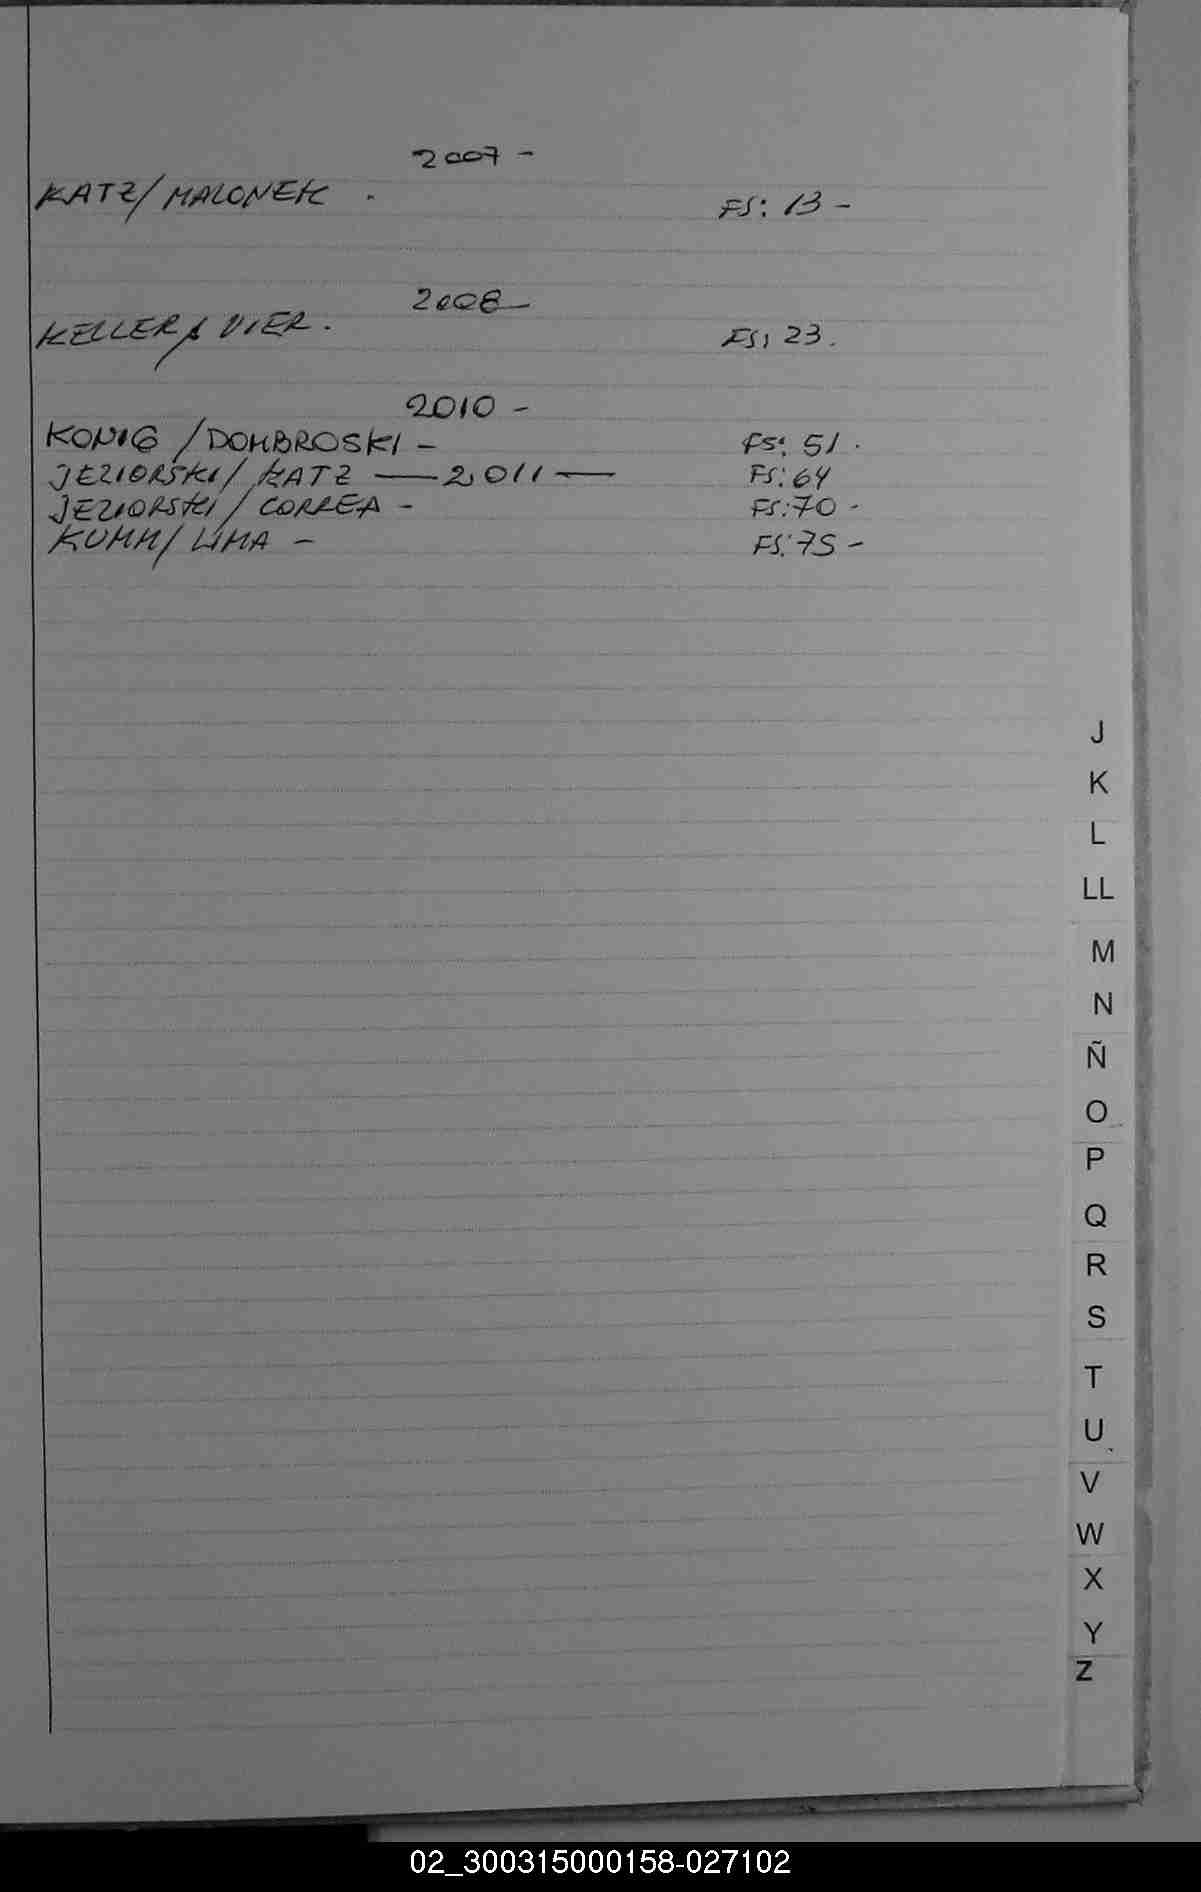 2007 -
KATZ/MALONEK . FS: 13 -
2008-
KELLER/ VIER. FS: 23.
2010 -
KONIG /DOMBROSKI - FS: 51.
JEZIORSKI/ KATZ — 2,011 — FS: 64
JEZIORSKI / CORREA - FS: 70 -
KUMM/ LIMA - FS: 75 -
J
K
L
LL
M
N
Ñ
O
P
Q
R
S
T
U
V
W
X
Y
Z
02_300315000158-027102